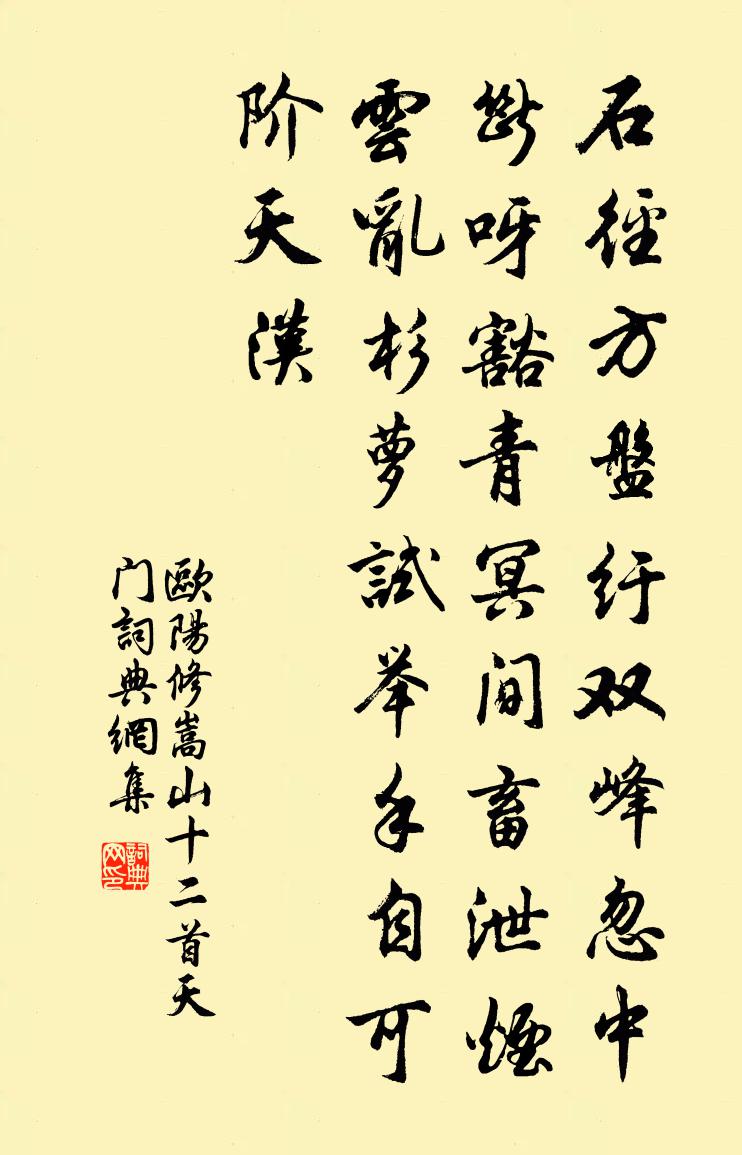 石徑方盤紆双峰忽中
斷呀豁青冥間畜泄煙
雲亂杉萝試举手自可
阶天漢
歐陽修嵩山十二首天
门詞典網集
詞典
网印